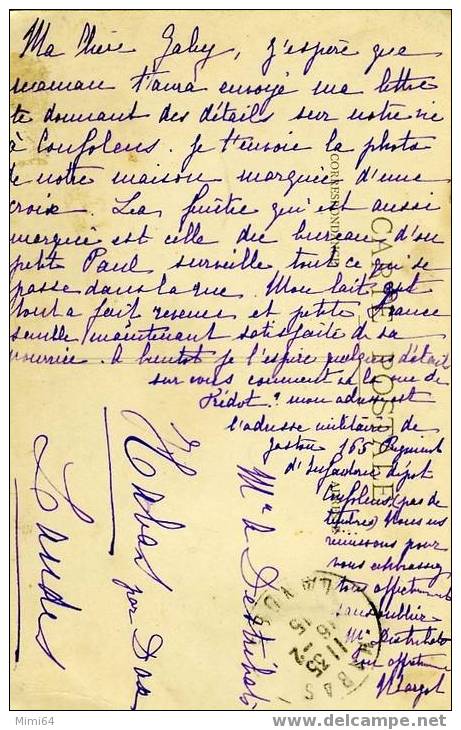 Ma Chère Gaby, J'espère que
maman t'aura envoyé ma lettre
te donnant des détails sur notre vie
à Confolens. Je t'envoie la photo
de notre maison marquée d'une
croix. La fenêtre qui est aussi
marqué est celle du bureau d'ou
petit Paul surveille tout ce qui se
passe dans la rue. Mon lait est
tout a fait revenu et petite France
semble maintenant satisfaite de sa
nourrice. A bientot je l'espère quelques détails
sur vous comment va la rue de
Rédot? mon adresse est
l'adresse militaire de
Gaston 165 Régiment
d'Infanterie dépot
Confolens (pas de
timbres) Nous nous
réunissons pour
vous embrasser
tous affectueusement
sans oublier
Me Destribats
Ton affectionnée
Margot
CARTE POSTALE
CORRESPONDANCE
Me A Destribats
Habas par Dax
Landes
HABAS
LANDES
11 35
16 15
Mimi64
http://www.delcampe.net